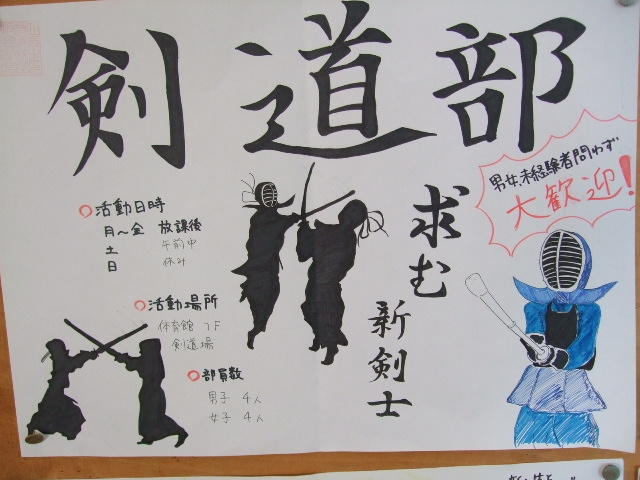 剣道部
男女、未経験者問わず
大歓迎!
求む
新剣士
○活動日時
月〜金 放課後
土 午前中
日 休み
○活動場所
体育館 1F
剣道場
○部員数
男子 4人
女子 4人